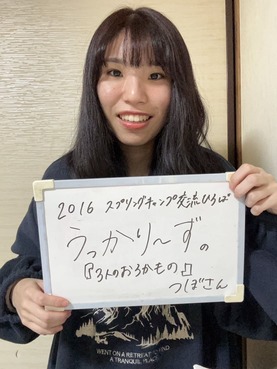 2016 スプリングキャンプ交流ひろば
うっかり〜ずの
『3人のおろかもの』
つぼさん
WENT ON A RETREAT TO FIND
A TRANQUIL PLACE